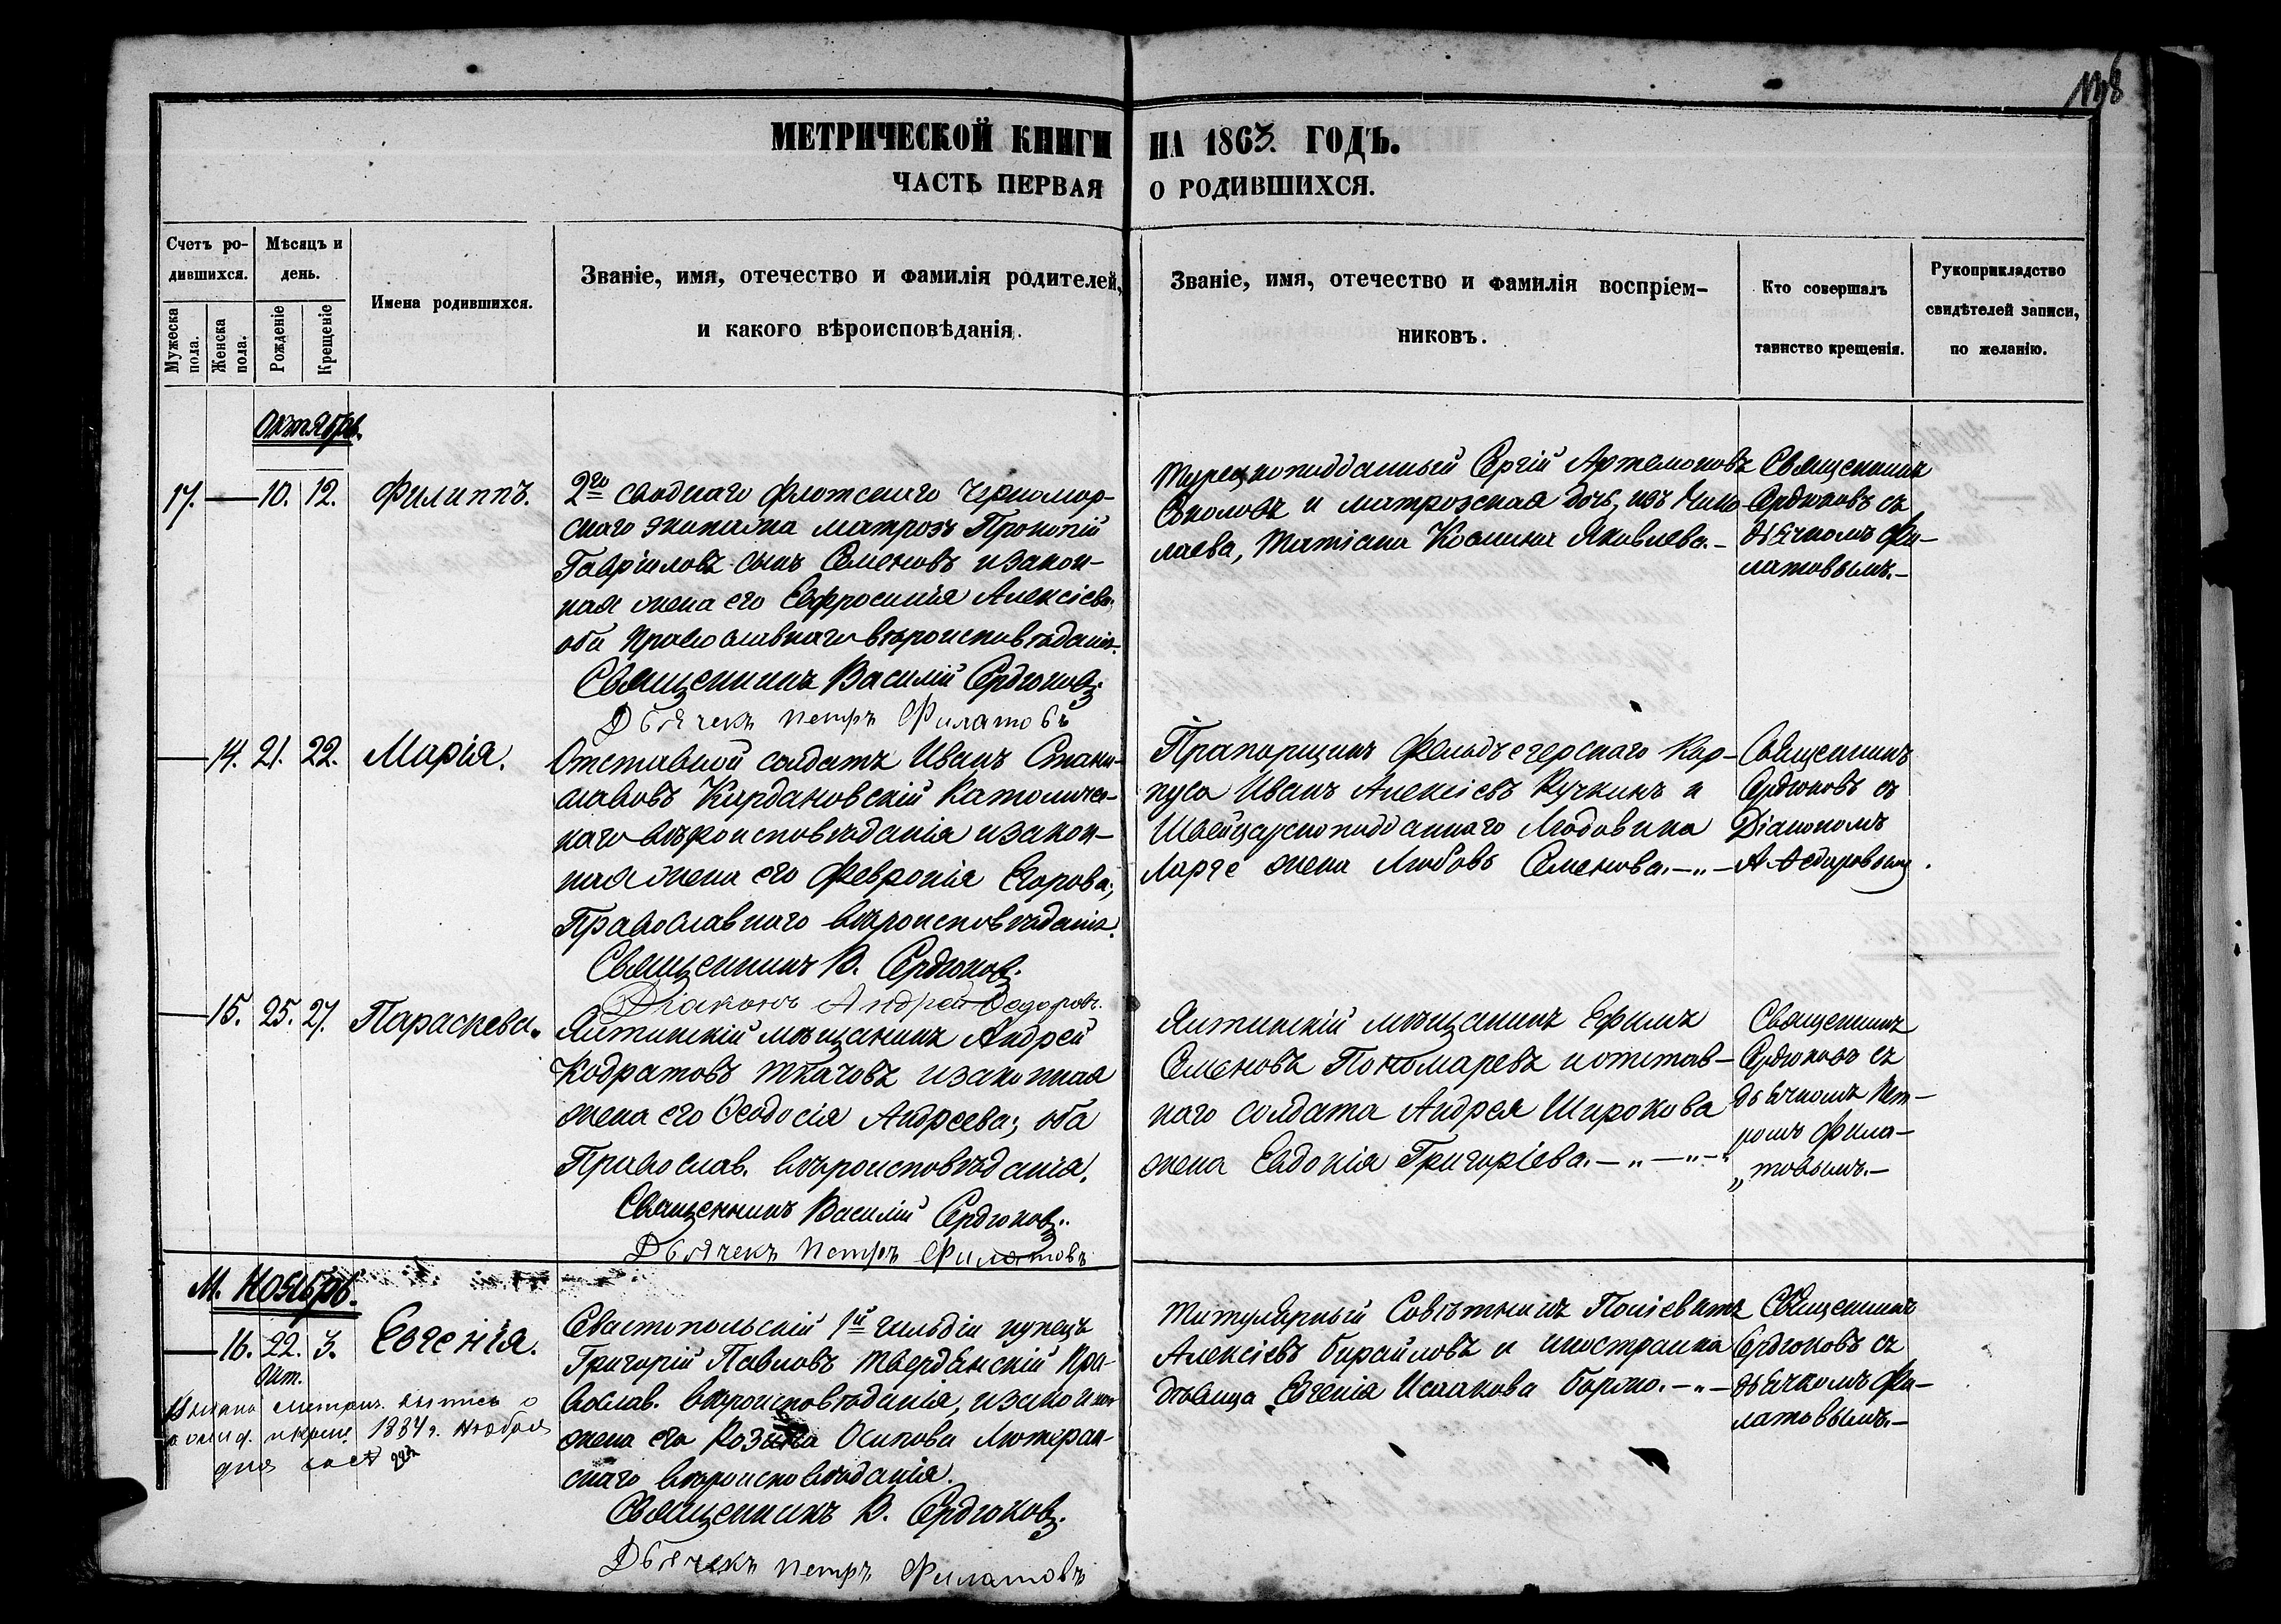 МЕТРИЧЕСКОЙ КНИГИ НА 1863. ГОДЪ.
ЧАСТЬ ПЕРВАЯ О РОДИВШИХСЯ.
Счетъ ро-
дившихся.
Мужеска пола.
Женска пола.
Мѣсяцъ и
день.
Рожденіе
Крещеніе
Имена родившихся.
Званіе, имя, отечество и фамилія родителей,
и какого вѣроисповѣданія.
Званіе, имя, отечество и фамилія воспріем-
никовъ.
Кто совершалъ
таинство крещенія.
Рукоприкладство
свидѣтелей записи,
по желанію.
Октябрь.
17. — 10. 12. Филиппъ.
2го своднаго флотскаго Черномор-
скаго экипажа матрозъ Прокопій
Гавріиловъ сынъ Семеновъ и закон-
ная жена его Евфросинія Алексіева;
оба православнаго вѣроисповѣданія.
Священникъ Василій Сердюковъ.
Дьячекъ Петръ Филатовъ
Турецкоподданный Сергій Артемоновъ
Соколовъ и матрозская дочь, изъ Нико-
лаева, Татіана Космина Яковлева.—
Священникъ
Сердюковъ съ
дьячкомъ Фи-
латовымъ.—
— 14. 21. 22. Марія.
Отставной солдатъ Иванъ Стани-
славовъ Кирдановскій Католичес-
каго вѣроисповѣданія и закон-
ная жена его Февронія Егорова;
Православнаго вѣроисповѣданія.
Священникъ В. Сердюковъ.
Діаконъ Андрей Федоровъ.
Прапорщикъ Фельдъегерскаго Кор-
пуса Иванъ Алексіевъ Кучкинъ и
Швейцарскоподданнаго Людовика
Ларге жена Любовь Семенова.—"—
Священникъ
Сердюковъ съ
Діакономъ
А. Ѳедоровымъ.
— 15. 25. 27. Параскева.
Ялтинскій мѣщанинъ Андрей
Кодратовъ Ткачовъ и законная
жена его Ѳеодосія Андреева; оба
Православ. вѣроисповѣданія.
Священникъ Василій Сердюковъ.
Дьячекъ Петръ Филатовъ
Ялтинскій мѣщанинъ Ефимъ
Семеновъ Пономаревъ и отстав-
наго солдата Андрея Широкова
жена Евдокія Григоріева.—"—"—"
Священникъ
Сердюковъ съ
дьячкомъ Пет-
ромъ Фила-
„товымъ.—
М. Ноябрь.
— 16. 22. 3. Евгенія.
Окт.
метрич. выпись о
1884 г. Ноября
дня
Севастопольскій 1й гильдіи купецъ
Григорій Павловъ Твердянскій Пра-
вослав. вѣроисповѣданія, и законная
жена его Розина Осипова Лютеран-
скаго вѣроисповѣданія.
Священникъ В. Сердюковъ.
Дьячекъ Петръ Филатовъ
Титулярный Совѣтникъ
Алексіевъ и иностранка
дѣвица Евгенія Исаакова —"—
Священникъ
Сердюковъ съ
дьячкомъ Фи-
латовымъ.—